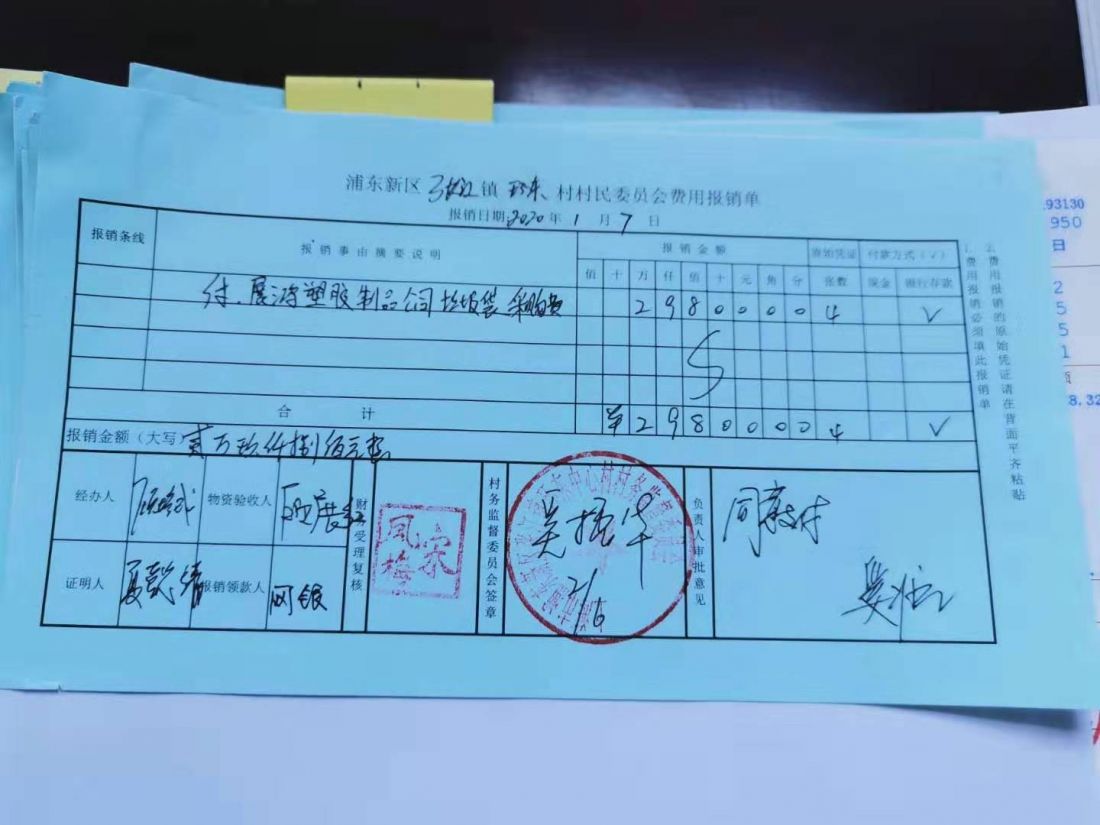 浦东新区 张江 镇 环东 村村民委员会费用报销单
报销日期 2020 年 1 月 7 日
报销条线 报销事由摘要说明 报销金额 原始凭证 付款方式(√)
佰 十 万 仟 佰 十 元 角 分 张数 现金 银行存款
付 塑胶制品公司垃圾袋采购费 2 9 8 0 0 0 0 4 √
合 计 2 9 8 0 0 0 0 4 √
报销金额（大写） 贰万玖仟捌佰元整
经办人 物资验收人
证明人 报销领款人 网银
财务受理复核
宋凤梅
村务监督委员会签章
1/6
负责人审批意见
同意支付
费用报销必须填此报销单
报销的原始凭证请在背面平齐粘贴
93130
950
日
2
5
5
1
8.32